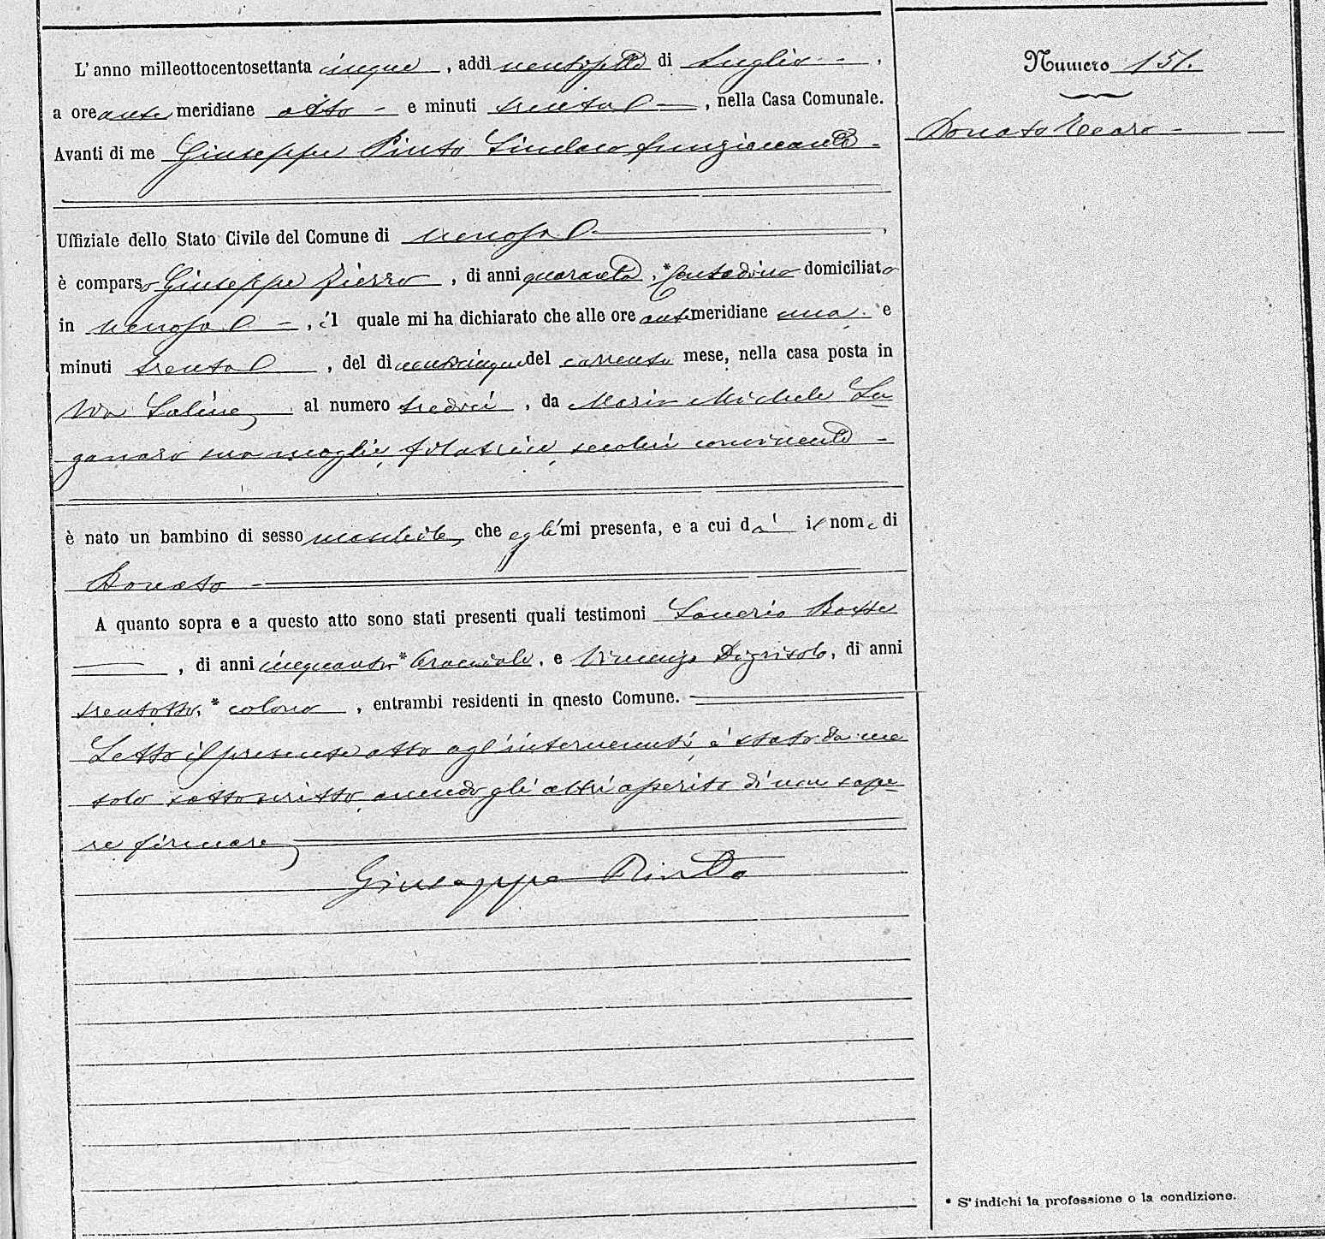 Numero 151.
Donato
L'anno milleottocentosettanta cinque, addì ventisette di Luglio,
a ore ante meridiane otto e minuti trenta, nella Casa Comunale.
Avanti di me Giuseppe Pinto Sindaco funzionante
Uffiziale dello Stato Civile del Comune di Venosa,
è comparso Giuseppe Fierro, di anni quaranta, *contadino domiciliato
in Venosa, il quale mi ha dichiarato che alle ore anti meridiane una e
minuti trenta, del dì venticinque del corrente mese, nella casa posta in
Via Saline al numero tredici, da Maria Michele La
ganaro sua moglie, filatrice, secolui convivente
è nato un bambino di sesso maschile, che egli mi presenta, e a cui dà il nome di
Donato
A quanto sopra e a questo atto sono stati presenti quali testimoni Saverio
, di anni cinquanta *bracciale, e Vincenzo Digrisolo, di anni
trentotto, *colono, entrambi residenti in qnesto Comune.
Letto il presente atto agl'intervenuti, è stato da me
solo sottoscritto avendo gli altri asserito di non sape
re firmare
Giuseppe Pinto
* S'indichi la professione o la condizione.